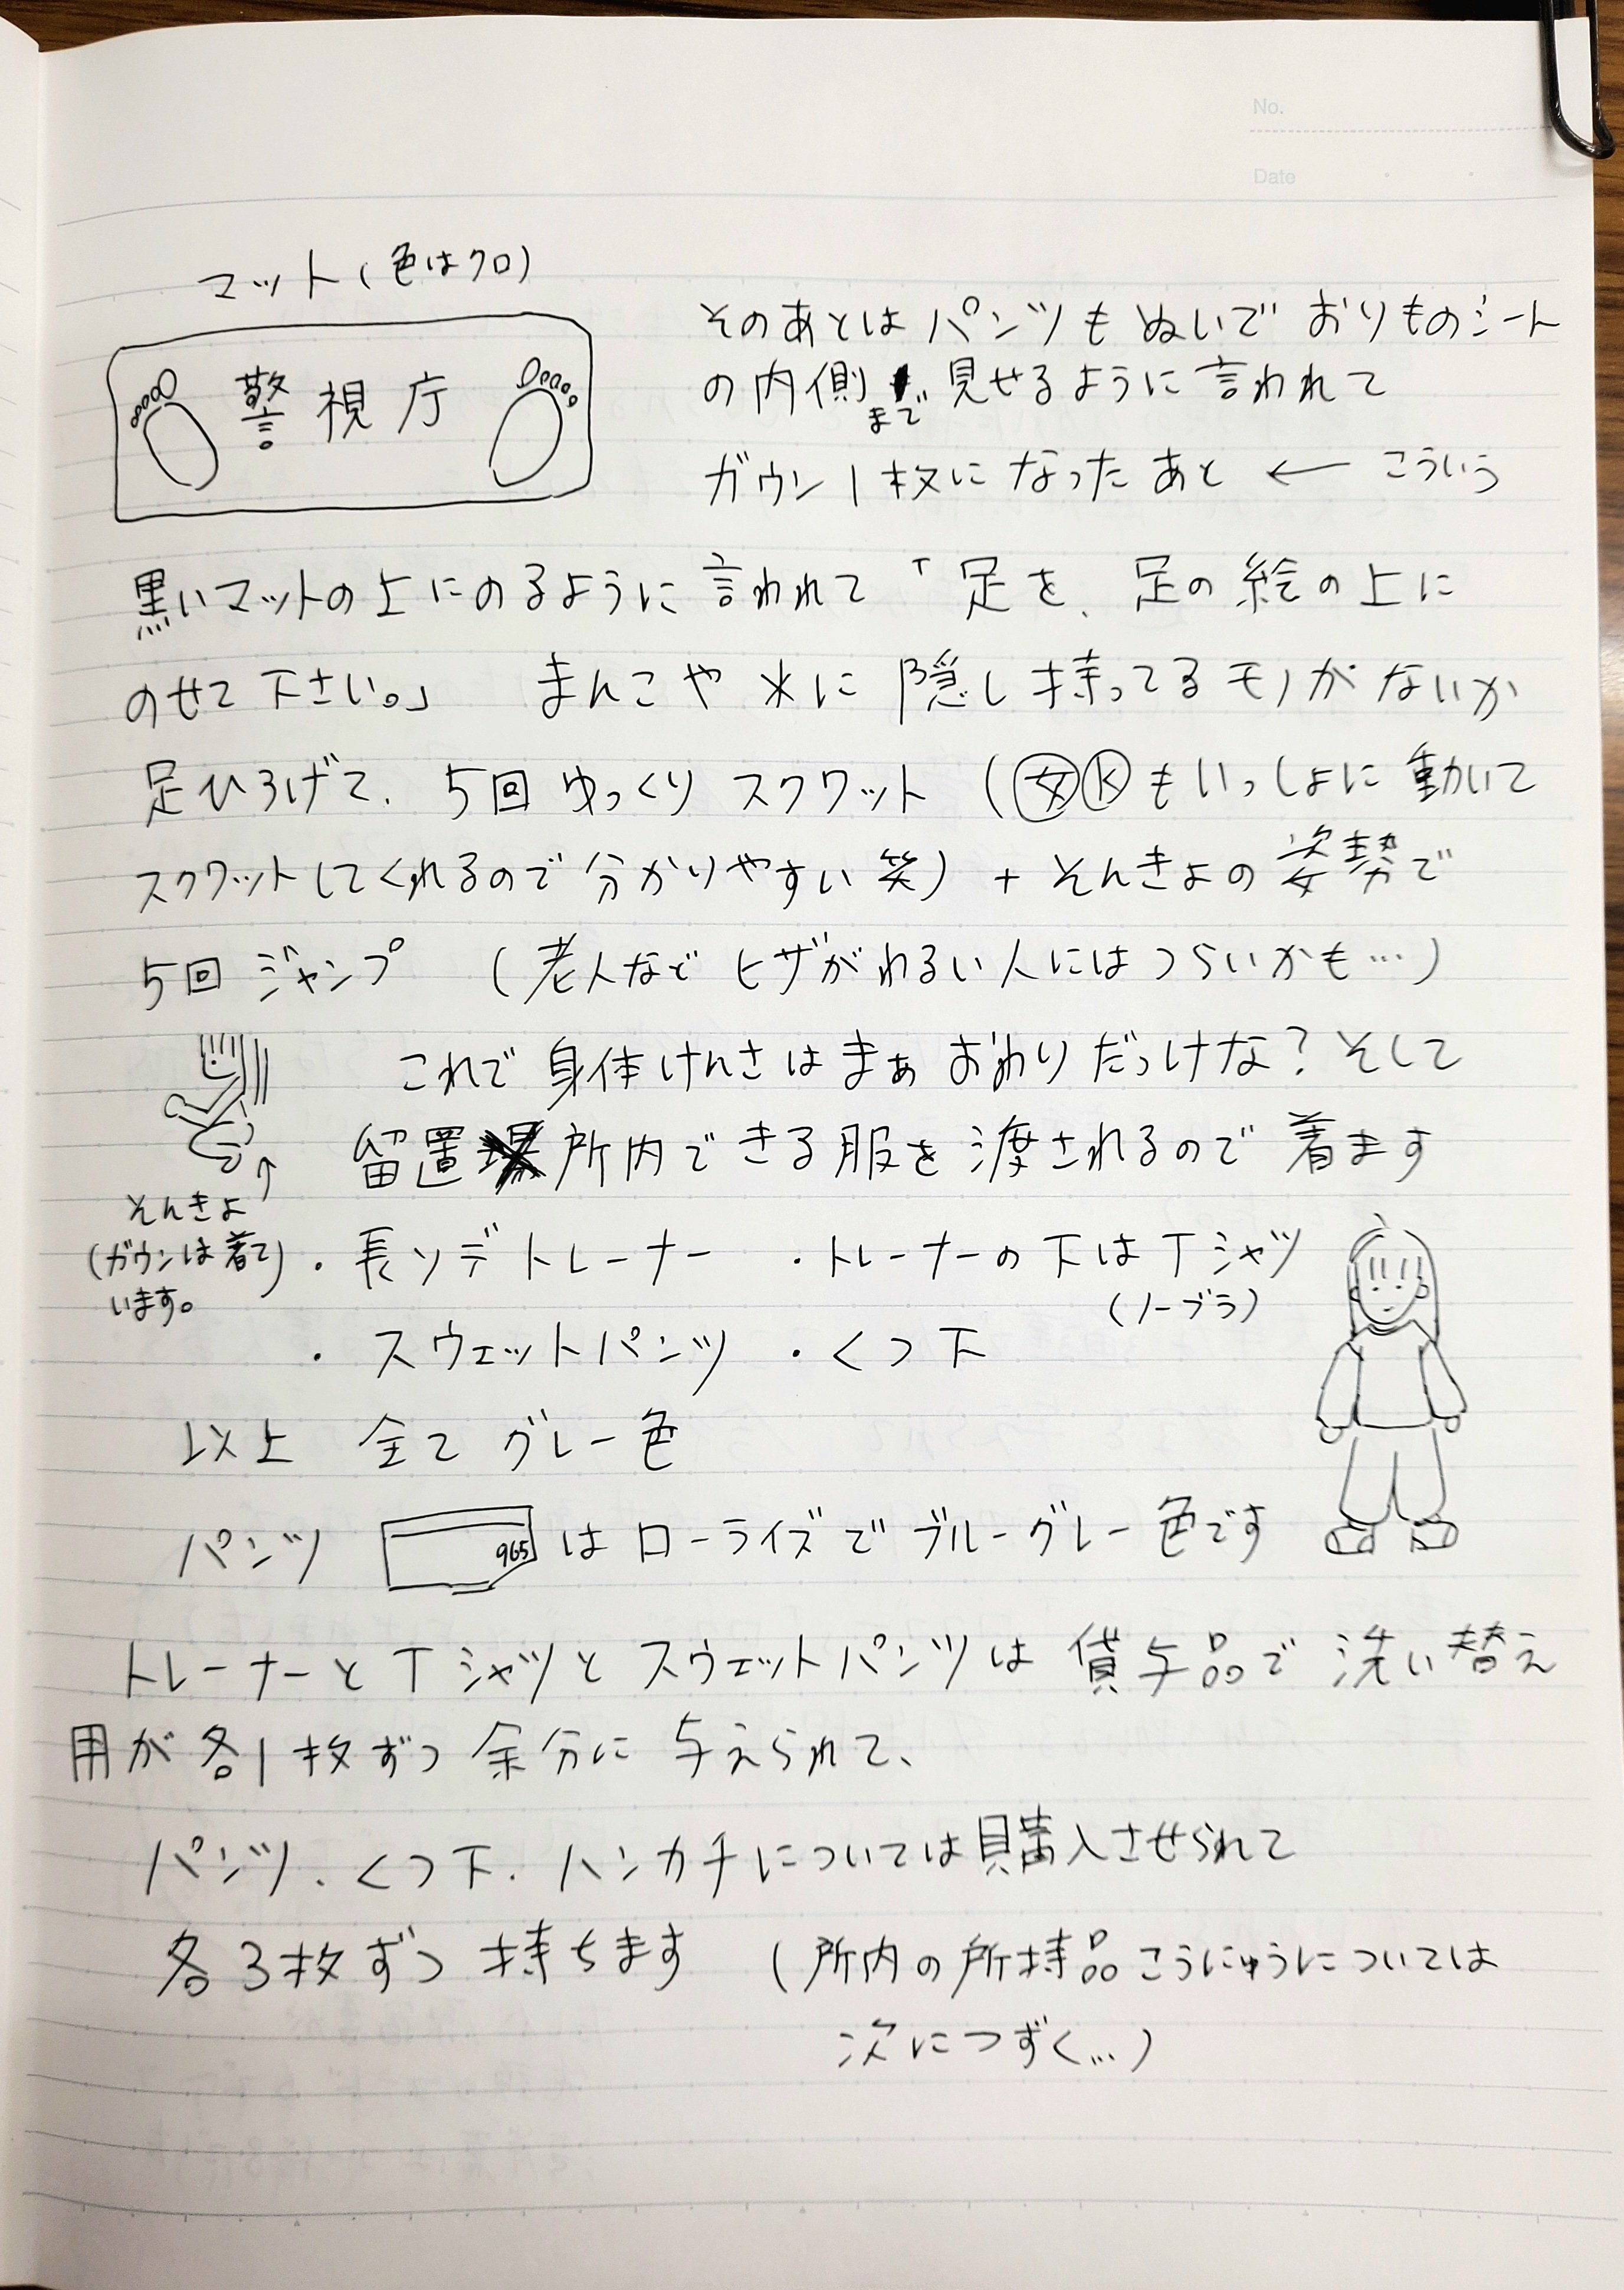 No.
Date
マット(色はクロ)
警視庁
そのあとは パンツも ぬいで おりものシート
の内側まで見せるように言われて
ガウン1枚になったあと ← こういう
黒いマットの上にのるように言われて「足を、足の絵の上に
のせて下さい。」 まんこや*に隠し持ってるモノがないか
足ひろげて、5回ゆっくりスクワット(女Kもいっしょに動いて
スクワットしてくれるので分かりやすい笑)+そんきょの姿勢で
5回ジャンプ (老人などヒザがわるい人にはつらいかも…)
これで身体けんさはまぁおわりだっけな?そして
留置所内できる服を渡されるので着ます
そんきょ
(ガウンは着て)
います。
・長ソデトレーナー ・トレーナーの下はTシャツ
(ノーブラ)
・スウェットパンツ ・くつ下
以上 全てグレー色
パンツ 965 はローライズでブルーグレー色です
トレーナーとTシャツとスウェットパンツは貸与品で洗い替え
用が各1枚ずつ余分に与えられて、
パンツ、くつ下、ハンカチについては購入させられて
各3枚ずつ持ちます (所内の所持品こうにゅうについては
次につずく…)